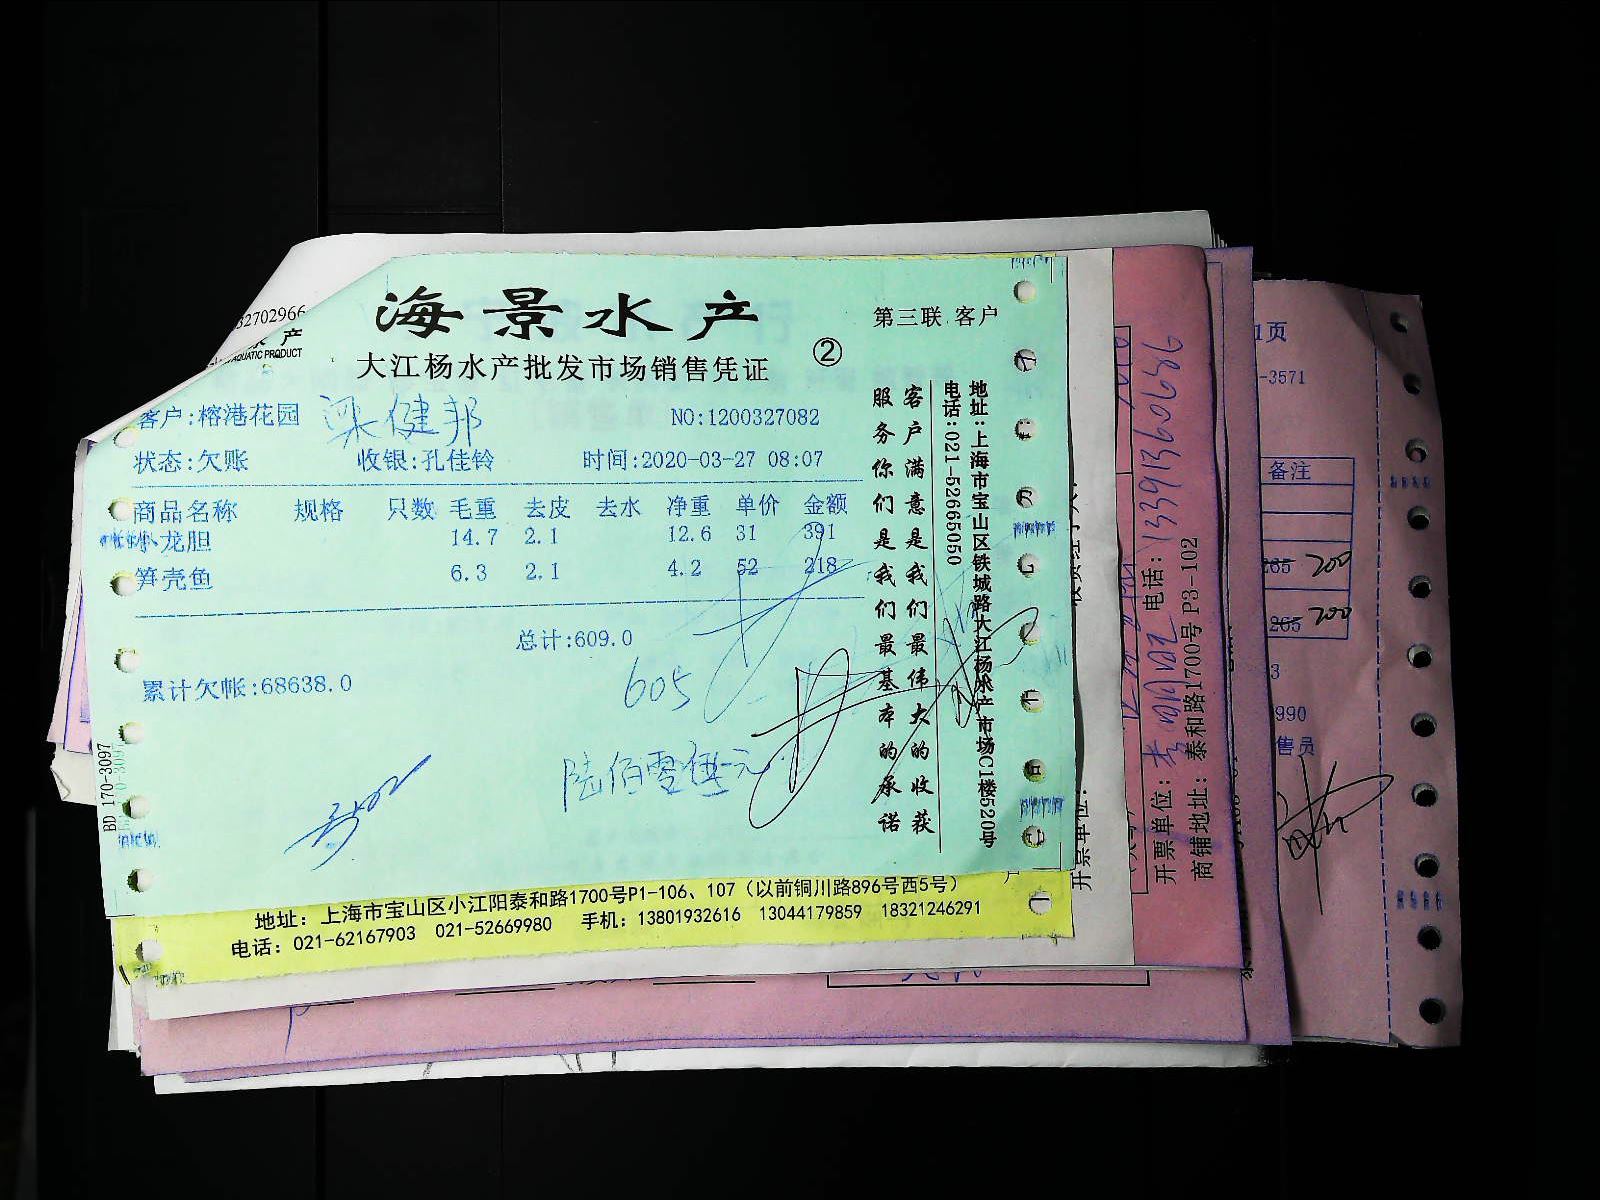 海景水产
大江杨水产批发市场销售凭证
②
第三联 客户
客户:榕港花园 梁健邦
NO:1200327082
状态:欠账 收银:孔佳铃 时间:2020-03-27 08:07
商品名称 规格 只数 毛重 去皮 去水 净重 单价 金额
小龙胆 14.7 2.1 12.6 31 391
笋壳鱼 6.3 2.1 4.2 52 218
总计:609.0
605
累计欠帐:68638.0
陆佰零伍元
客户满意是我们最伟大的收获
服务你们是我们最基本的承诺
地址:上海市宝山区铁城路大江杨水产市场C1楼520号
电话:021-52665050
BD 170-3097
32702966
水产
AQUATIC PRODUCT
地址: 上海市宝山区小江阳泰和路1700号P1-106、107 (以前铜川路896号西5号)
电话: 021-62167903 021-52669980 手机: 13801932616 13044179859 18321246291
开票单位:
开票单位:
电话: 13391360686
商铺地址: 泰和路1700号 P3-102
1页
-3571
备注
265 200
265 200
3
990
售员